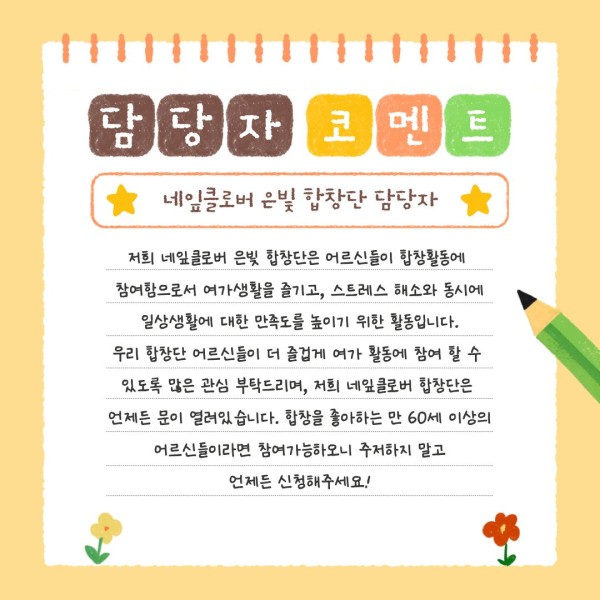 담당자 코멘트
네잎클로버 은빛 합창단 담당자
저희 네잎클로버 은빛 합창단은 어르신들이 합창활동에
참여함으로서 여가생활을 즐기고, 스트레스 해소와 동시에
일상생활에 대한 만족도를 높이기 위한 활동입니다.
우리 합창단 어르신들이 더 즐겁게 여가 활동에 참여 할 수
있도록 많은 관심 부탁드리며, 저희 네잎클로버 합창단은
언제든 문이 열려있습니다. 합창을 좋아하는 만 60세 이상의
어르신들이라면 참여가능하오니 주저하지 말고
언제든 신청해주세요!